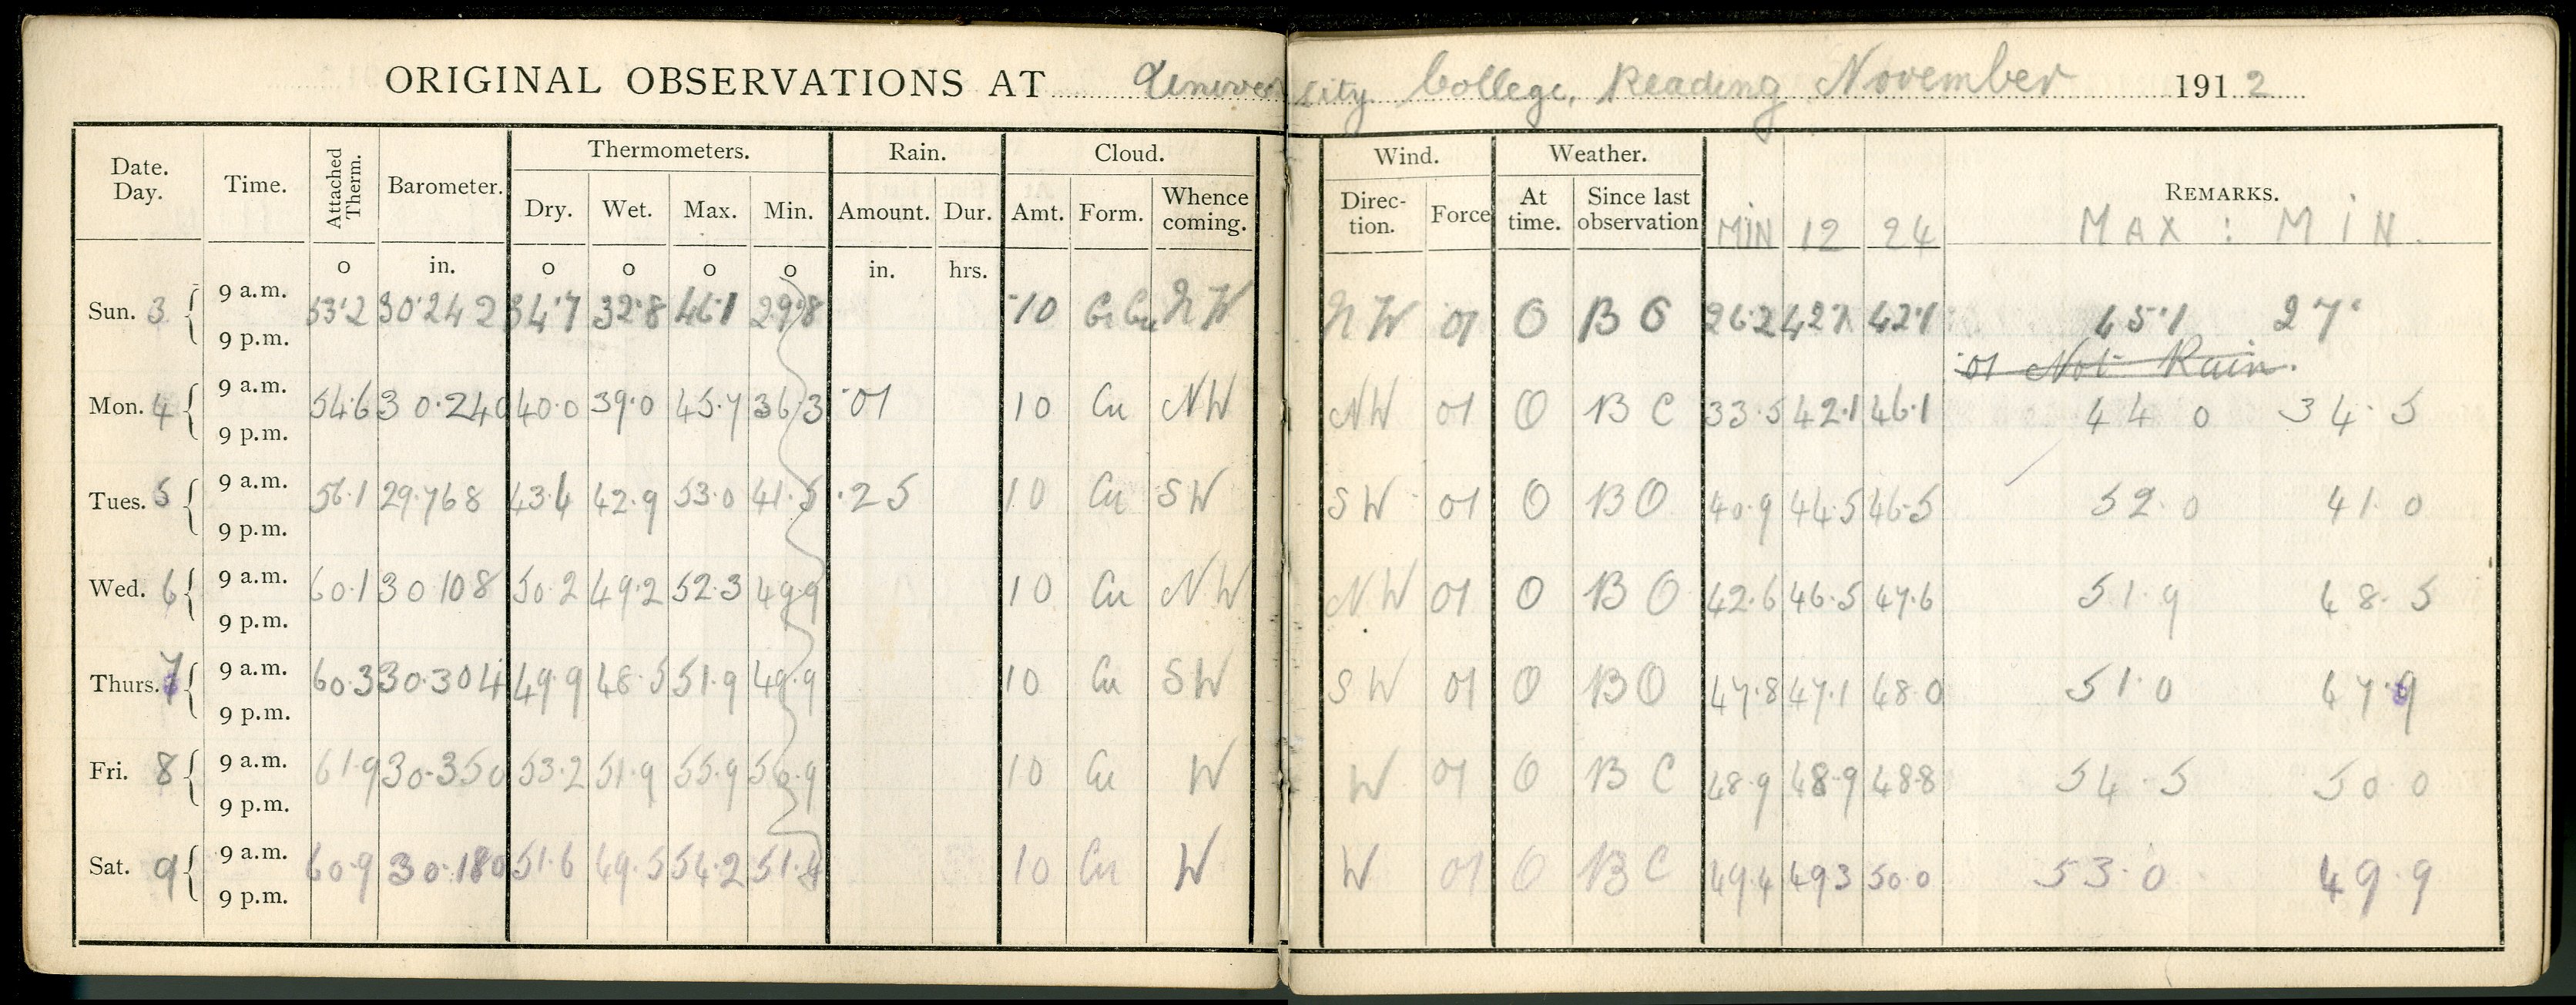 ORIGINAL OBSERVATIONS AT University College, Reading November 1912
Date. Day. Time. Attached Therm. Barometer. Thermometers. Rain. Cloud. Wind. Weather. REMARKS.
Dry. Wet. Max. Min. Amount. Dur. Amt. Form. Whence coming. Direc-tion. Force At time. Since last observation MIN 12 24 MAX : MIN.
o in. o o o o in. hrs.
Sun. 3 9 a.m. 53.2 30.242 34.7 32.8 46.1 29.8 10 Ci Cu NW NW 01 O B C 26.2 42.7 42.1 45.1 27.
9 p.m.
.01 Not Rain.
Mon. 4 9 a.m. 54.6 30.240 40.0 39.0 45.7 36.3 .01 10 Cu NW NW 01 O B C 33.5 42.1 46.1 44 0 34.5
9 p.m.
Tues. 5 9 a.m. 56.1 29.768 43.4 42.9 53.0 41.5 .25 10 Cu SW SW 01 O B O 40.9 44.5 46.5 52.0 41.0
9 p.m.
Wed. 6 9 a.m. 60.1 30 108 50.2 49.2 52.3 49.9 10 Cu NW NW 01 O B O 42.6 46.5 47.6 51.9 48.5
9 p.m.
Thurs. 7 9 a.m. 60.3 30.304 49.9 48.5 51.9 49.9 10 Cu SW SW 01 O B O 47.8 47.1 48.0 51.0 47.9
9 p.m.
Fri. 8 9 a.m. 61.9 30.350 53.2 51.9 55.9 50.9 10 Cu W W 01 O B C 48.9 48.9 48.8 54.5 50.0
9 p.m.
Sat. 9 9 a.m. 60.9 30.180 51.6 49.5 54.2 51.4 10 Cu W W 01 O B C 49.4 49.3 50.0 53.0 49.9
9 p.m.